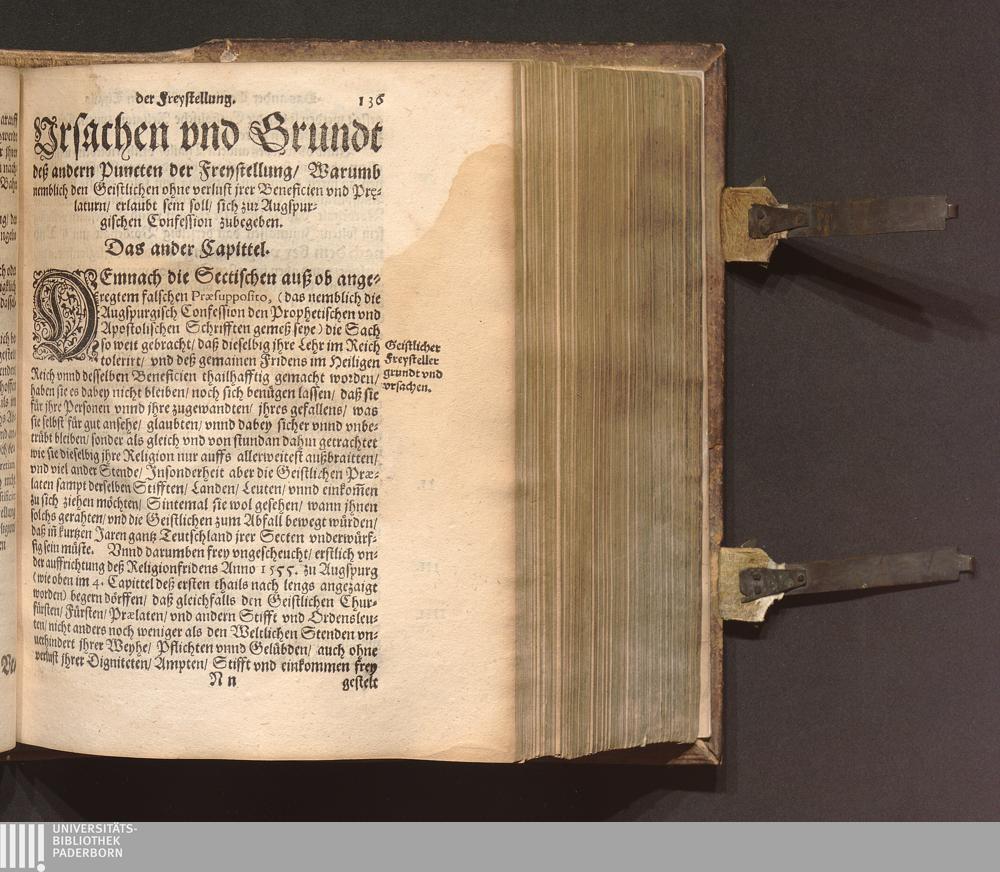 der Freystellung. 136
Vrsachen vnd Grundt
deß andern Puncten der Freystellung/ Warumb
nemblich den Geistlichen ohne verlust jrer Beneficien vnd Pręlaturn/ erlaubt
sein soll/ sich zur Augspurgischen
Confession zubegeben.
Das ander Capittel.
DEmnach die Sectischen auß ob angeregtem
falschen Præsupposito, (das nemblich die
Augspurgisch Confession den Prophetischen vnd
Apostolischen Schrifften gemeß seye) die Sach
so weit gebracht/ daß dieselbig jhre Lehr im Reich
tolerirt/ vnd deß gemainen Fridens im Heiligen
Reich vnnd desselben Beneficien thailhafftig gemacht worden/
haben sie es dabey nicht bleiben/ noch sich benügen lassen/ daß sie
für jhre Personen vnnd jhre zugewandten/ jhres gefallens/ was
sie selbst für gut ansehe/ glaubten/ vnnd dabey sicher vnnd vnbetrübt
bleiben/ sonder als gleich vnd von stundan dahin getrachtet
wie sie dieselbig jhre Religion nur auffs allerweitest außbraitten/
vnd viel ander Stende/ Insonderheit aber die Geistlichen Prælaten
sampt derselben Stifften/ Landen/ Leuten/ vnnd einkom̃en
zu sich ziehen möchten/ Sintemal sie wol gesehen/ wann jhnen
solchs gerahten/ vnd die Geistlichen zum Abfall bewegt würden/
daß in kurtzen Jaren gantz Teutschland jrer Secten vnderwürffig
sein müste. Vnnd darumben frey vngescheucht/ erstlich vnder
auffrichtung deß Religionfridens Anno 1555. zu Augspurg
(wie oben im 4. Capittel deß ersten thails nach lengs angezaigt
worden) begern dörffen/ daß gleichfalls den Geistlichen Churfürsten/
Fürsten/ Prælaten/ vnd andern Stifft vnd Ordensleuten/
nicht anders noch weniger als den Weltlichen Stenden vnuerhindert
jhrer Weyhe/ Pflichten vnnd Gelübden/ auch ohne
verlust jhrer Digniteten/ Ampten/ Stifft vnd einkommen frey
N n gestelt
Geistlicher
Freysteller
grundt vnd
vrsachen.
UNIVERSITÄTS-
BIBLIOTHEK
PADERBORN